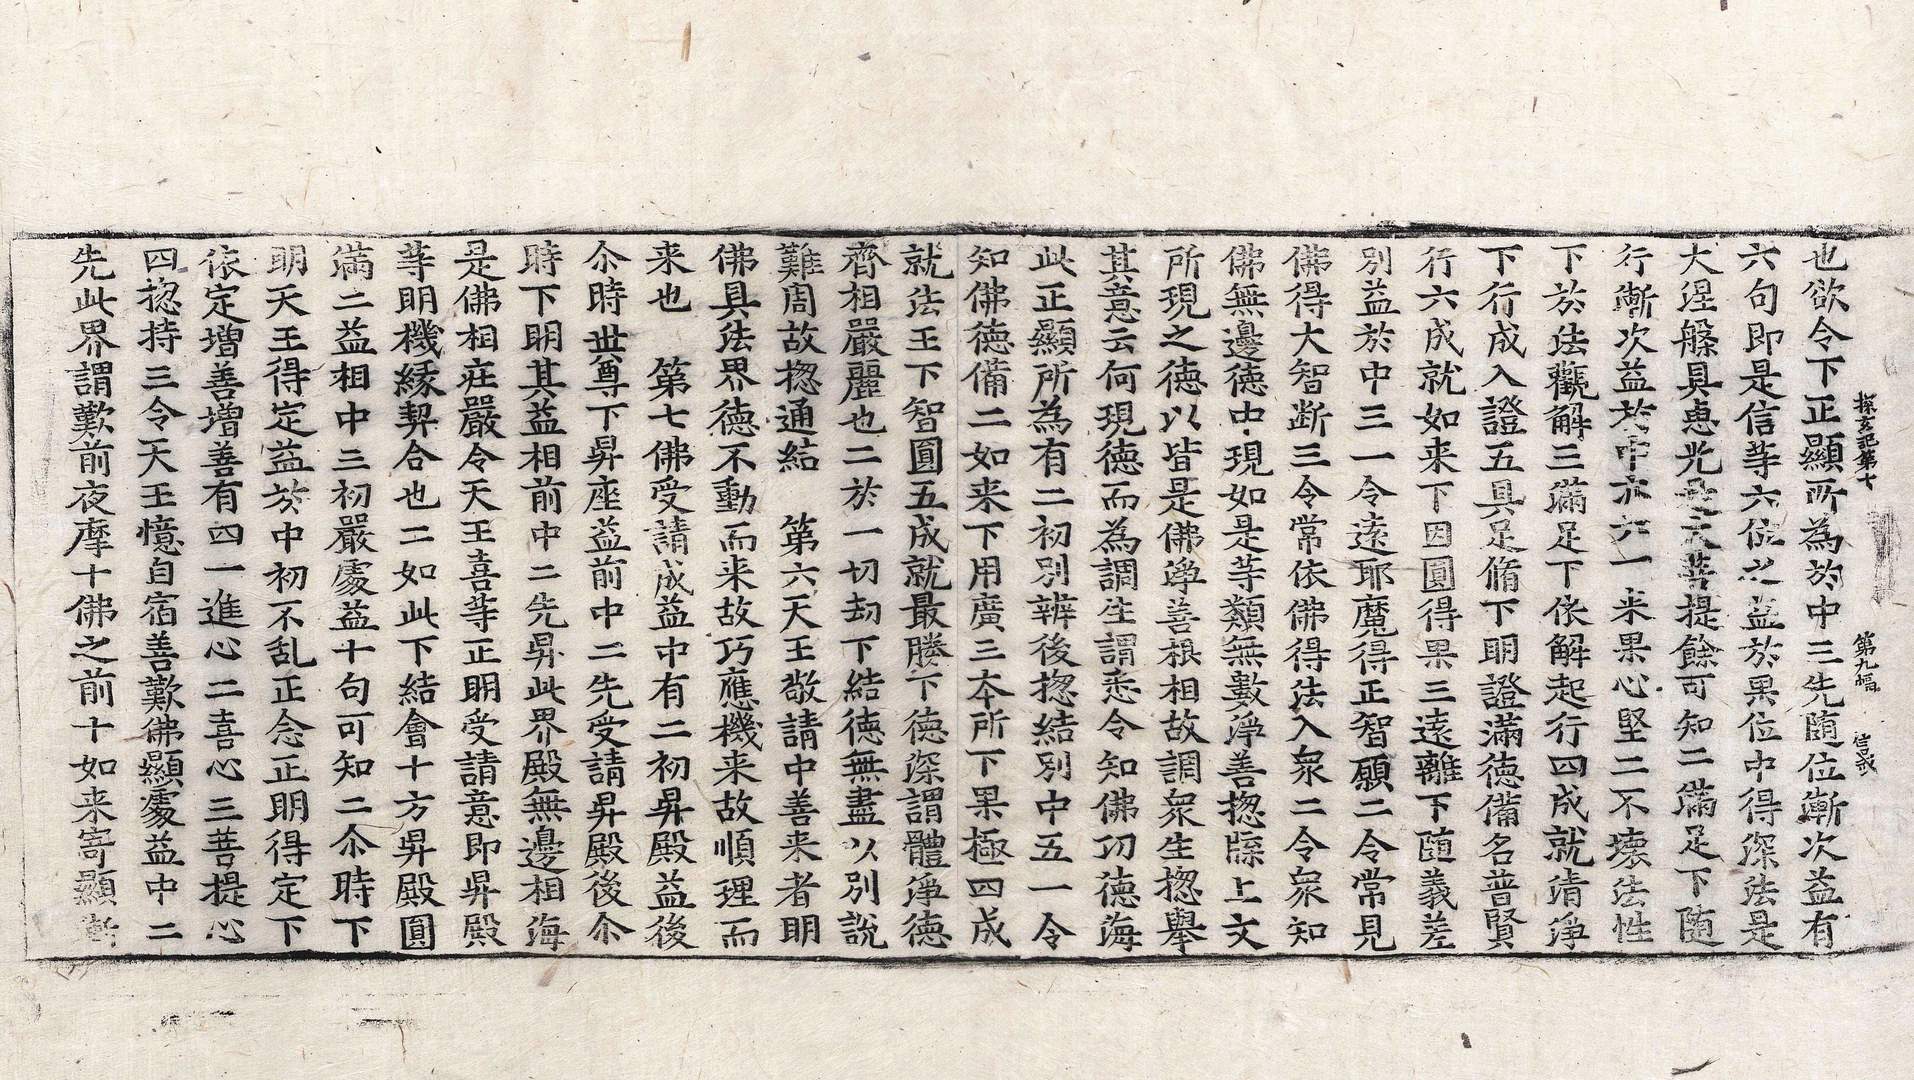 探玄記第七 第九幅 信戒
也欲令下正顯所為於中三先随位漸次益有
六句即是信等六位之益於果位中得深法是
大涅槃具恵光是大菩提餘可知二滿足下随
行漸次益於中亦六一来果心堅二不壊法性
下於法觀解三滿足下依解起行四成就清淨
下行成入證五具足脩下明證滿德備名普賢
行六成就如来下因圓得果三遠離下随義差
別益於中三一令遠耶魔得正智願二令常見
佛得大智断三令常依佛得法入衆二令衆知
佛無邊徳中現如是等類無數淨善揔牒上文
所現之徳以皆是佛淨善根相故調衆生揔舉
其意云何現徳而為調生謂悉令知佛功徳海
此正顯所為有二初別辨後揔結別中五一令
知佛徳備二如来下用廣三本所下果極四成
就法王下智圓五成就最勝下徳深謂體淨徳
齊相嚴麗也二於一切劫下結徳無盡以別說
難周故揔通結　第六天王敬請中善来者明
佛具法界徳不動而来故巧應機来故順理而
来也　第七佛受請成益中有二初昇殿益後
尒時世尊下昇座益前中二先受請昇殿後尒
時下明其益相前中二先昇此界殿無邊相海
是佛相莊嚴令天王喜等正明受請意即昇殿
等明機緣契合也二如此下結會十方昇殿圓
滿二益相中三初嚴處益十句可知二尒時下
明天王得定益於中初不乱正念正明得定下
依定增善增善有四一進心二喜心三菩提心
四揔持三令天王憶自宿善歎佛顯處益中二
先此界謂歎前夜摩十佛之前十如来寄顯漸